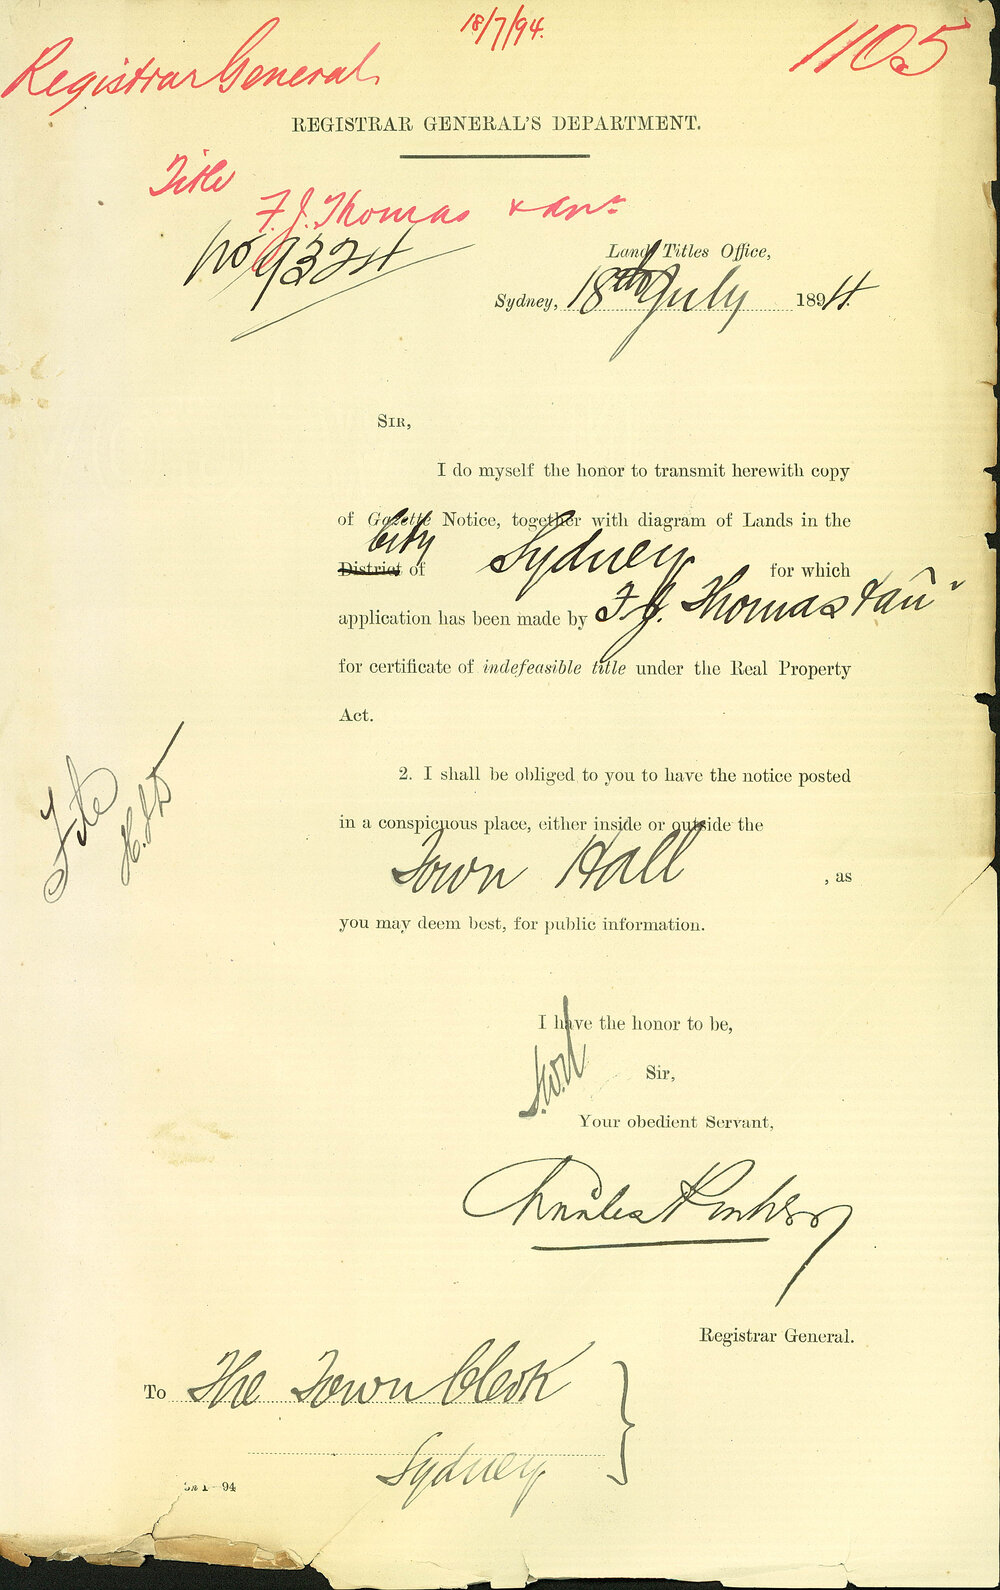 18/7/94.
1105
Registrar General
REGISTRAR GENERAL'S DEPARTMENT.
Title
F. J. Thomas & anr
No 9324
Land Titles Office,
Sydney, 18th July 1894.
SIR,
I do myself the honor to transmit herewith copy
of Gazette Notice, together with diagram of Lands in the
City
District of Sydney for which
application has been made by F. J. Thomas & anr
for certificate of indefeasible title under the Real Property
Act.
2. I shall be obliged to you to have the notice posted
in a conspicuous place, either inside or outside the
Town Hall, as
you may deem best, for public information.
File
I have the honor to be,
Sir,
Your obedient Servant,
Charles
Registrar General.
To The Town Clerk
Sydney
94